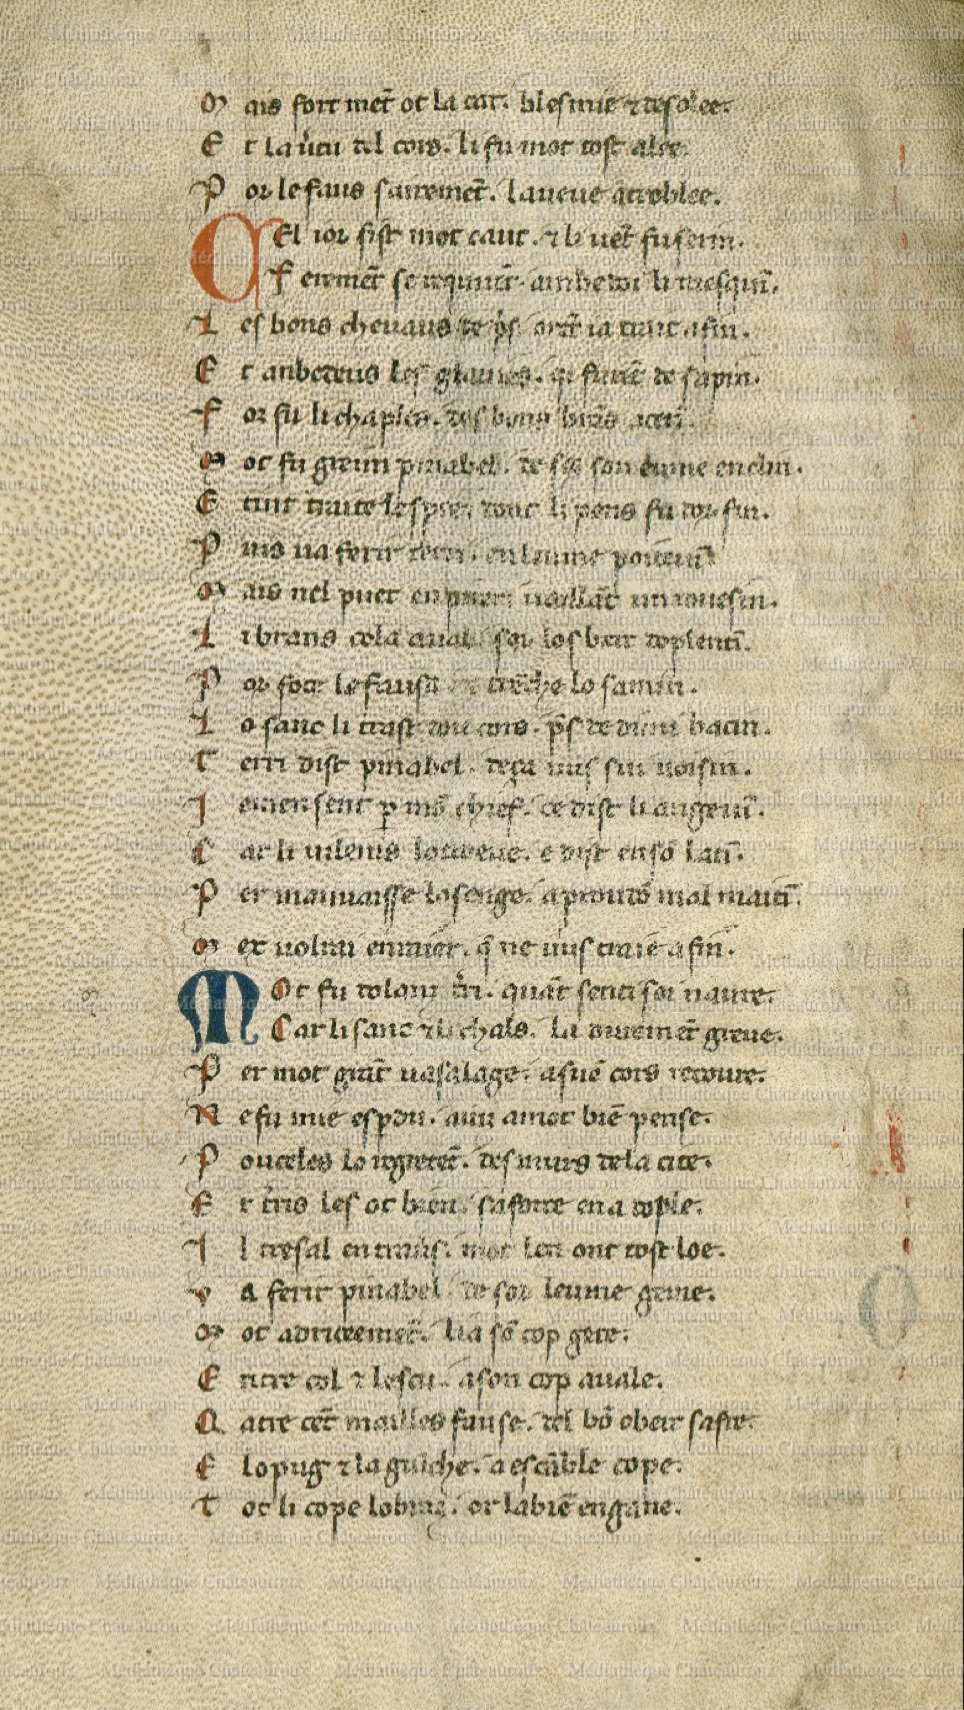 M ais fort met̄ ot la car. blesmie ⁊ desolee.
E t la u̓tu del cors. li fu mot tost alee.
P or le faus sairemet̄. la ueue atroblee.
C El ior fist mot caut. ⁊ li uet̄ fu serin.
F eremet̄ se requiret̄. ambedoi li meschin̄.
L es bons cheuaus de p̓s. ont̄ ia tint a fin.
E t anbedeus les glaiues. qi furēt de sapin.
F or fu li chaples. des bons brās acerī.
M ot fu greuī pinabel. de s son eume enclin.
E tint traite lespee. dont li pons fu dor fin.
P uis ua ferir terri. en leume poiteuin̄
M ais nel puet enpirier. uaillāt un rouesin.
L i brans cola aual. sor los beir doplentī.
P or foce le fausa trēche lo samin.
L o sanc li trast dou cors. p̄s de dimi bacin.
T erri dist pinabel. deça uus sui uoisin.
J emen sent p̱ mō chief. ce dist li angeuin̄.
C ar li uilenis lo troeue. e dist en sō latī.
P er mauuaisse losenge. a prouō mal maitī.
M ex uoltrai enraier. q̄ ne uus traie a fin.
M Ot fu dolonz t̓ri. quāt senti soi naure.
C ar li sanc ⁊ li chals. la duremet̄ greue.
P er mot grāt uasalage. a suē cors recoure.
N e fu mie espdu. anz a mot biē pense.
P ouceles lo regretet̄. des murs de la cite.
E t t̓ris les ot bien. sa force en a dople.
I l tresal en trauers. mot len ont tost loe.
V a ferir pinabel. de sor leume geme.
M ot adritemet̄. li a sō cop gete.
E ntre col ⁊ lescu. a son cop auale.
Q atre cēt mailles fause. del bō obeir safre.
E lo pug ⁊ la guiche. a escāble cope.
T ot li cope lo braz. or la biē engane.